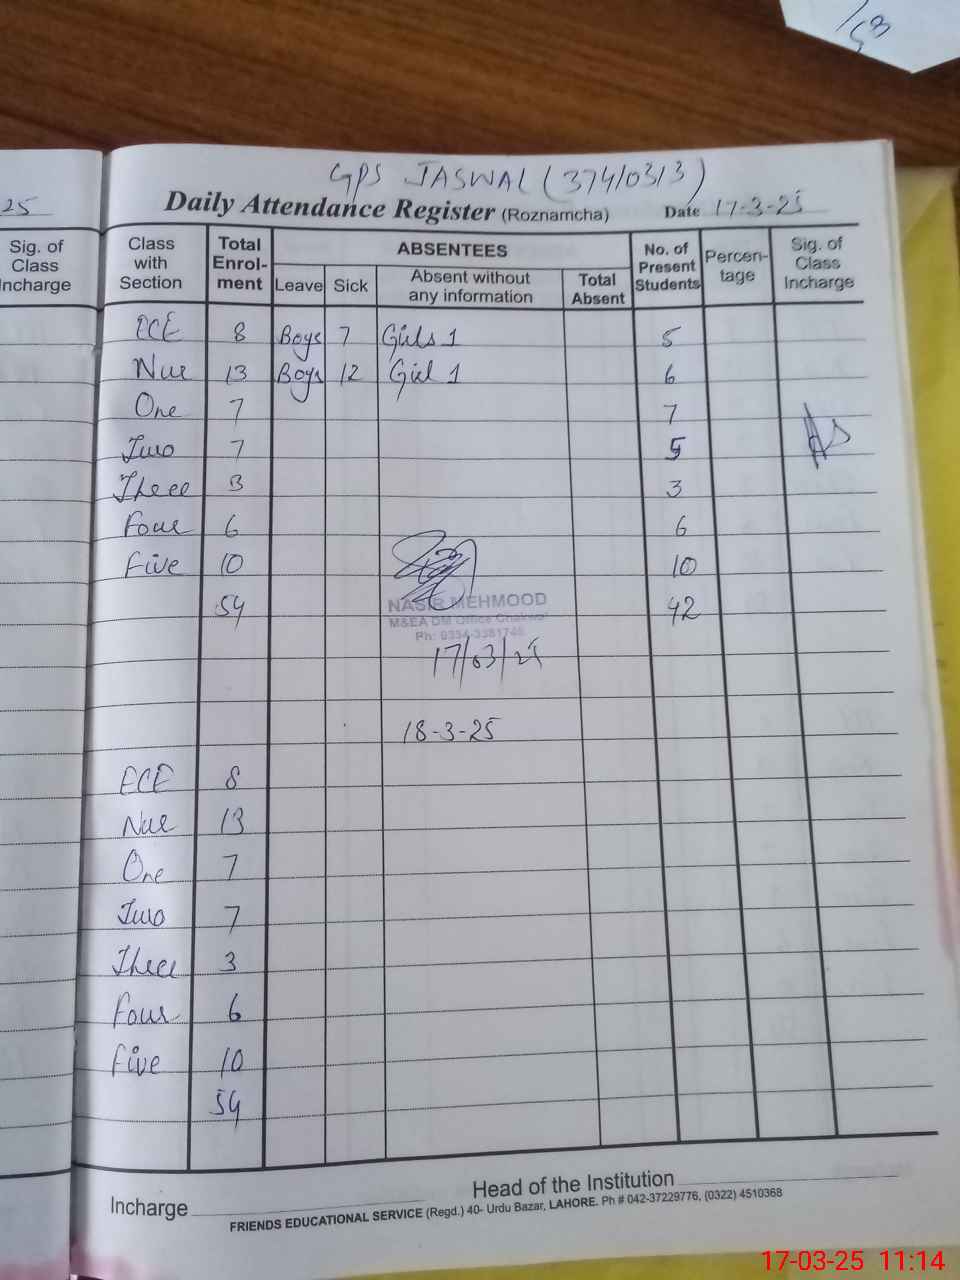 /58
GPS JASWAL (37410313)
25
Daily Attendance Register (Roznamcha) Date 17-3-25
Sig. of Class Incharge
Class with Section Total Enrol-ment ABSENTEES No. of Present Students Percen-tage Sig. of Class Incharge
Leave Sick Absent without any information Total Absent
ECE 8 Boys 7 Girls 1 5
Nur 13 Boys 12 Girl 1 6
One 7 7
Two 7 5
Three 3 3
Four 6 6
Five 10 10
54 42
NASIR MEHMOOD
M&EA DM Office Chakwal
Ph: 0334-3381748
17/03/25
18-3-25
ECE 8
Nur 13
One 7
Two 7
Three 3
Four 6
Five 10
54
Incharge Head of the Institution
FRIENDS EDUCATIONAL SERVICE (Regd.) 40- Urdu Bazar, LAHORE. Ph # 042-37229776, (0322) 4510368
17-03-25 11:14